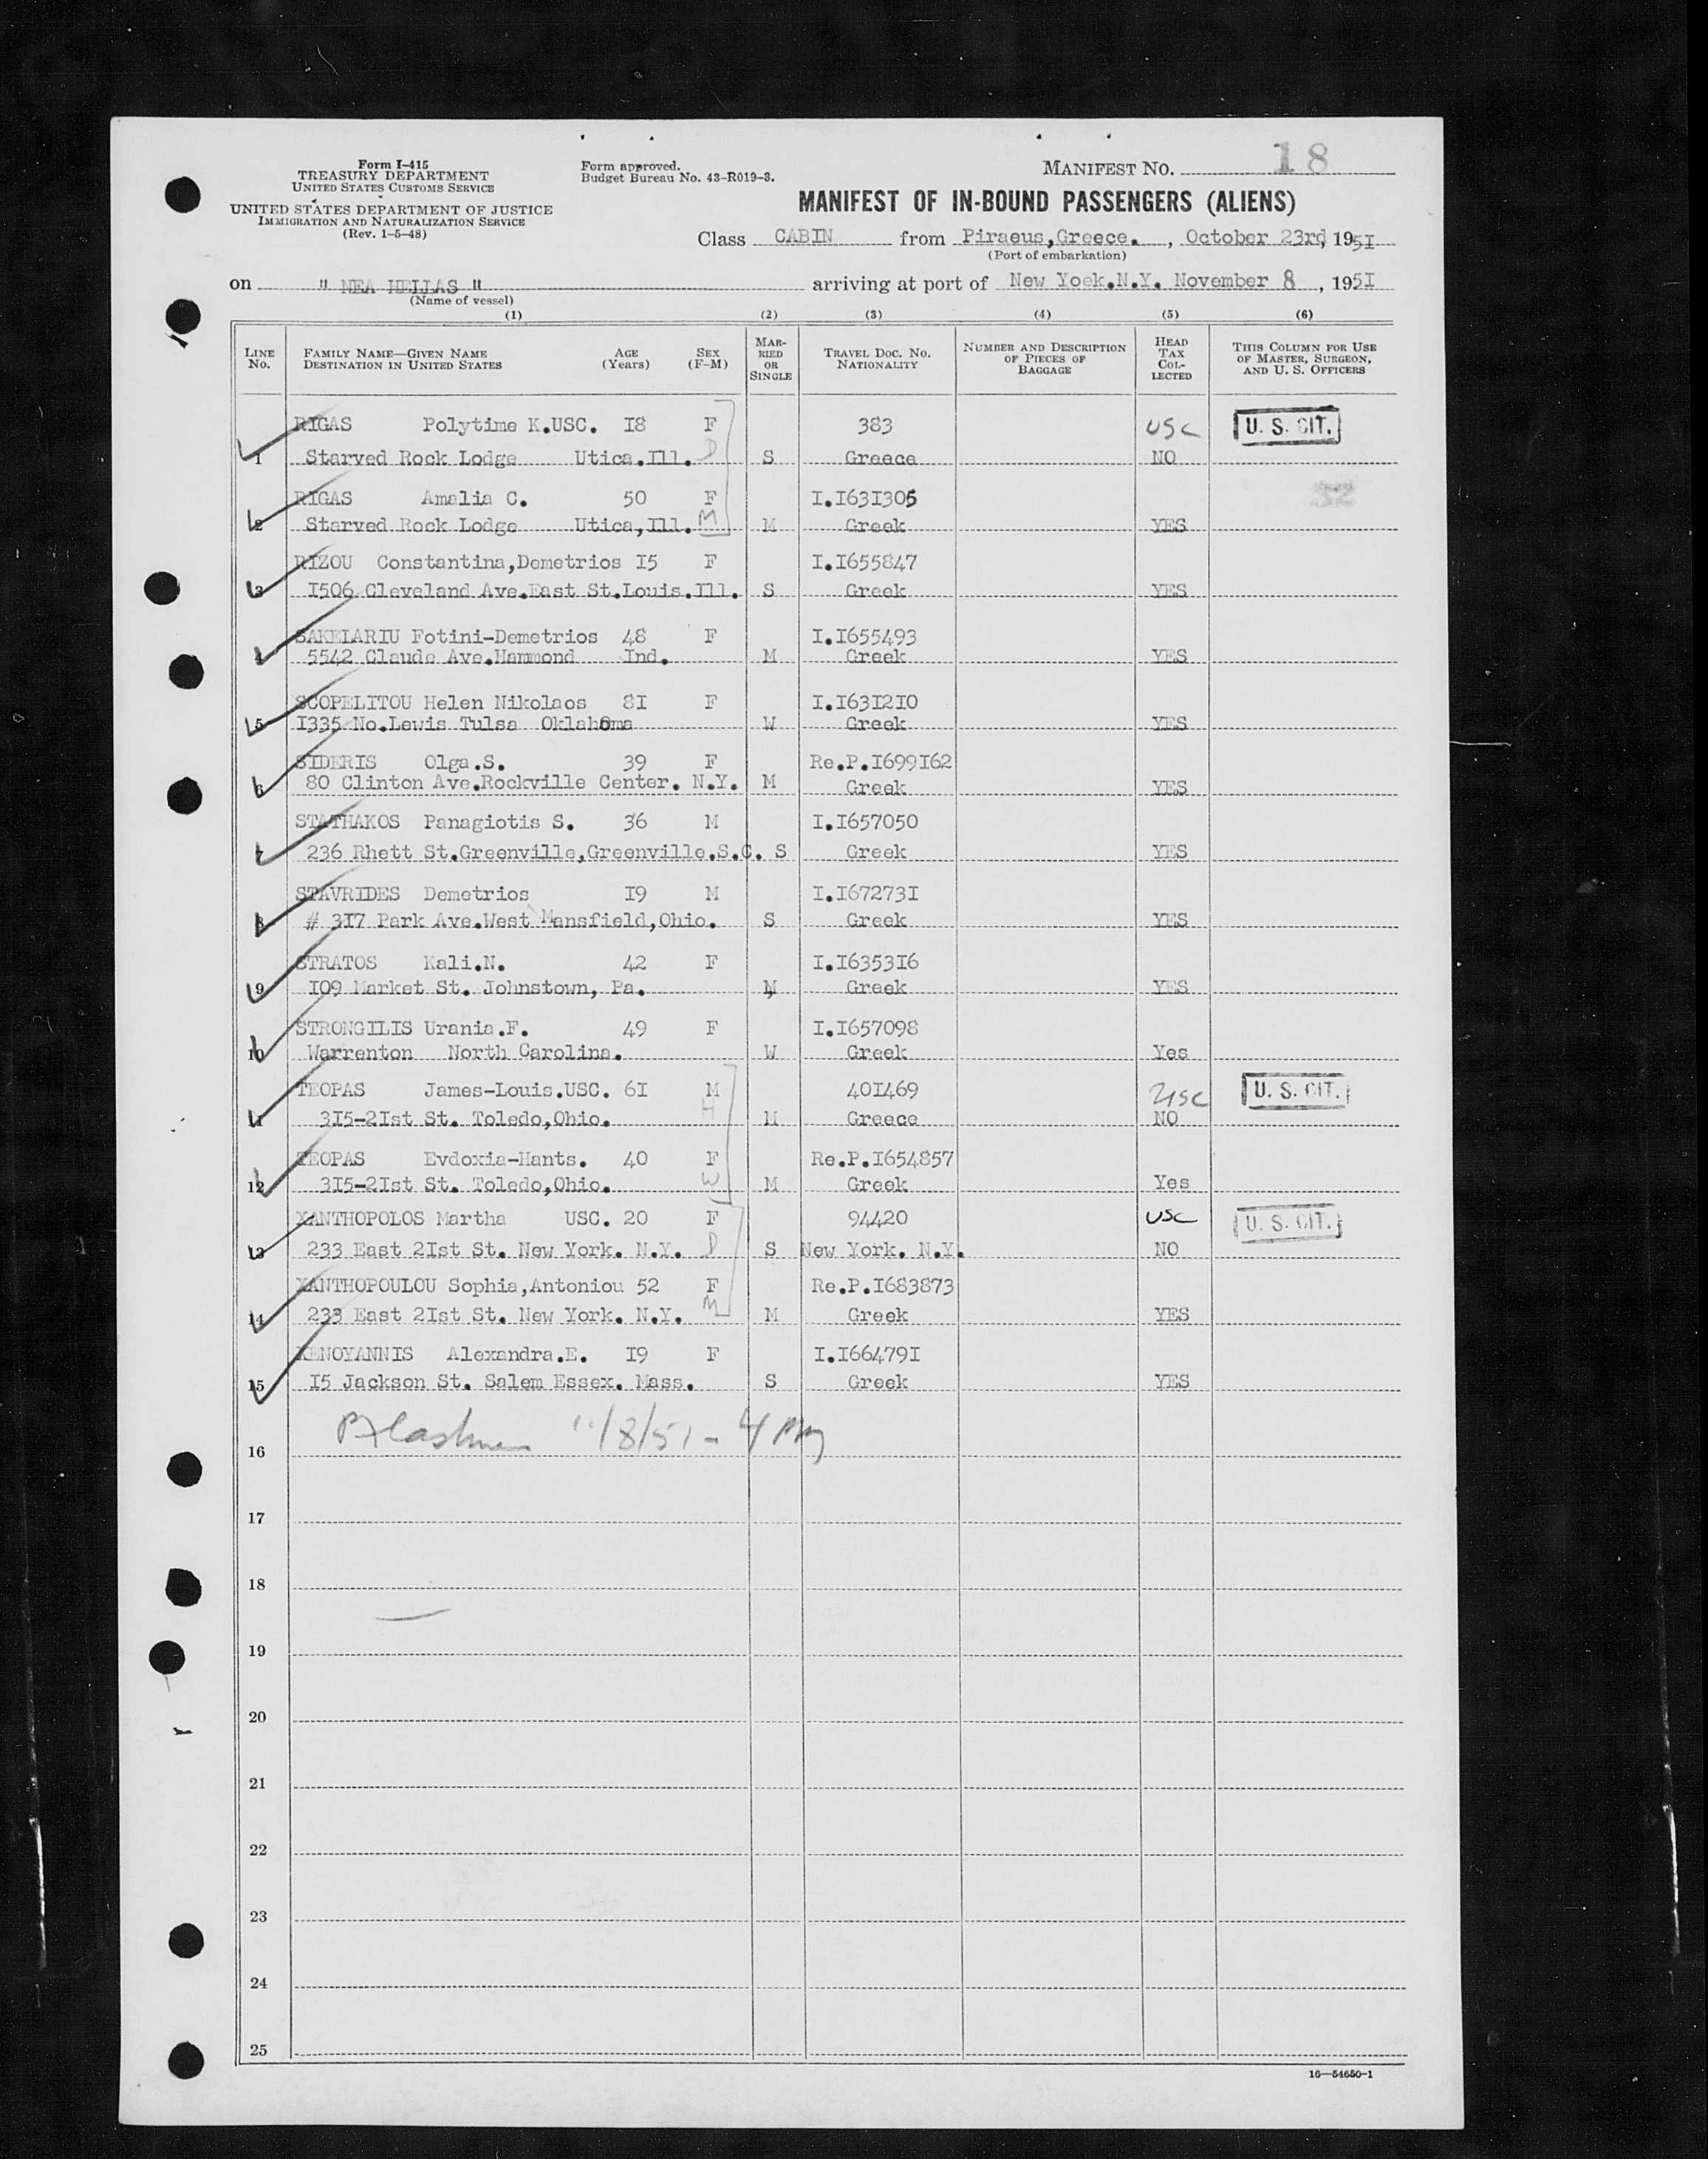 Form I-415
TREASURY DEPARTMENT
UNITED STATES CUSTOMS SERVICE
UNITED STATES DEPARTMENT OF JUSTICE
IMMIGRATION AND NATURALIZATION SERVICE
(Rev. 1-5-48)
Form approved.
Budget Bureau No. 43-R019-3.
MANIFEST NO. 18
MANIFEST OF IN-BOUND PASSENGERS (ALIENS)
Class CABIN from Piraeus,Greece. , October 23rd, 1951
(Port of embarkation)
on " NEA HELLAS " arriving at port of New Yoek.N.Y. November 8 , 1951
(Name of vessel)
(1) (2) (3) (4) (5) (6)
LINE No. FAMILY NAME—GIVEN NAME DESTINATION IN UNITED STATES AGE (Years) SEX (F-M) MARRIED OR SINGLE TRAVEL DOC. NO. NATIONALITY NUMBER AND DESCRIPTION OF PIECES OF BAGGAGE HEAD TAX COLLECTED THIS COLUMN FOR USE OF MASTER, SURGEON, AND U. S. OFFICERS
RIGAS Polytime K.USC. I8 F 383 USC U. S. CIT.
1 Starved Rock Lodge Utica.Ill. D S Greece NO
RIGAS Amalia C. 50 F I.I63I305 32
2 Starved Rock Lodge Utica,Ill. M M Greek YES
RIZOU Constantina,Demetrios I5 F I.I655847
3 I506 Cleveland Ave.East St.Louis.Ill. S Greek YES
SAKELARIU Fotini-Demetrios 48 F I.I655493
4 5542 Claude Ave.Hammond Ind. M Greek YES
SCOPELITOU Helen Nikolaos 8I F I.I63I2I0
5 I335 No.Lewis Tulsa Oklahoma W Greek YES
SIDERIS Olga.S. 39 F Re.P.I699I62
6 80 Clinton Ave.Rockville Center. N.Y. M Greek YES
STATHAKOS Panagiotis S. 36 M I.I657050
7 236 Rhett St.Greenville,Greenville.S.C. S Greek YES
STAVRIDES Demetrios I9 M I.I67273I
8 # 3I7 Park Ave.West Mansfield,Ohio. S Greek YES
STRATOS Kali.N. 42 F I.I6353I6
9 I09 Market St. Johnstown, Pa. M Greek YES
STRONGILIS Urania.F. 49 F I.I657098
10 Warrenton North Carolina. W Greek Yes
TEOPAS James-Louis.USC. 6I M 40I469 USC U. S. CIT.
11 3I5-2Ist St. Toledo,Ohio. H M Greece NO
TEOPAS Evdoxia-Hants. 40 F Re.P.I654857
12 3I5-2Ist St. Toledo,Ohio. W M Greek Yes
XANTHOPOLOS Martha USC. 20 F 94420 USC U. S. CIT.
13 233 East 2Ist St. New York. N.Y. D S New York. N.Y. NO
XANTHOPOULOU Sophia,Antoniou 52 F Re.P.I683873
14 233 East 2Ist St. New York. N.Y. M M Greek YES
XENOYANNIS Alexandra.E. I9 F I.I66479I
15 I5 Jackson St. Salem Essex. Mass. S Greek YES
11/8/51 - 4 PM
16
17
18
19
20
21
22
23
24
25
16—54650-1